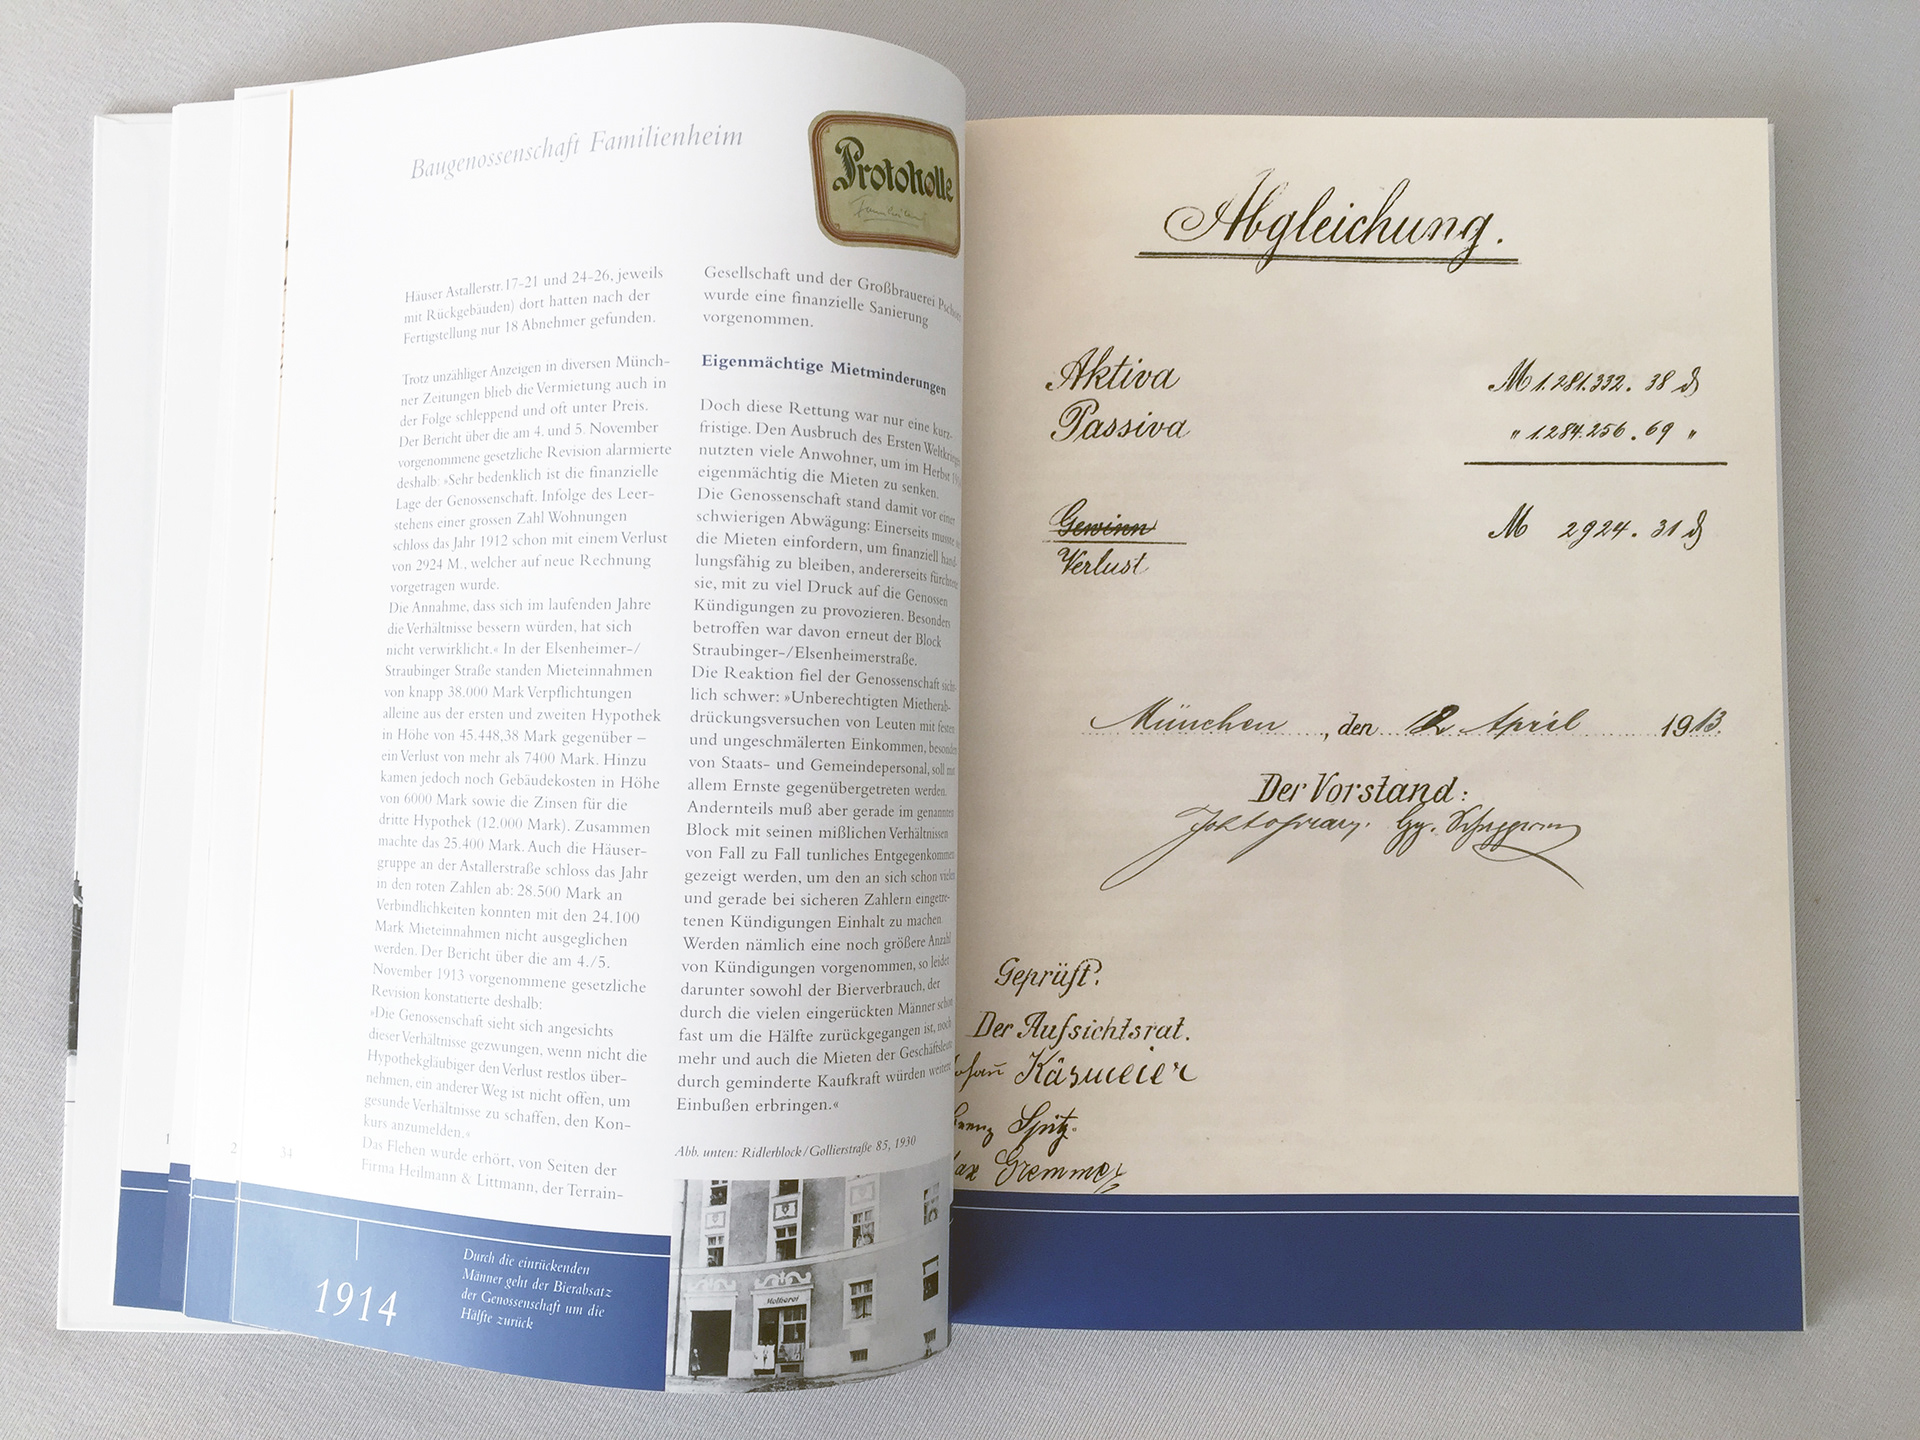 Baugenossenschaft Familienheim
Protokolle
Häuser Astallerstr. 17-21 und 24-26, jeweils
mit Rückgebäuden) dort hatten nach der
Fertigstellung nur 18 Abnehmer gefunden.
Trotz unzähliger Anzeigen in diversen Münch-
ner Zeitungen blieb die Vermietung auch in
der Folge schleppend und oft unter Preis.
Der Bericht über die am 4. und 5. November
vorgenommene gesetzliche Revision alarmierte
deshalb: »Sehr bedenklich ist die finanzielle
Lage der Genossenschaft. Infolge des Leer-
stehens einer grossen Zahl Wohnungen
schloss das Jahr 1912 schon mit einem Verlust
von 2924 M., welcher auf neue Rechnung
vorgetragen wurde.
Die Annahme, dass sich im laufenden Jahre
die Verhältnisse bessern würden, hat sich
nicht verwirklicht.« In der Elsenheimer-/
Straubinger Straße standen Mieteinnahmen
von knapp 38.000 Mark Verpflichtungen
alleine aus der ersten und zweiten Hypothek
in Höhe von 45.448,38 Mark gegenüber –
ein Verlust von mehr als 7400 Mark. Hinzu
kamen jedoch noch Gebäudekosten in Höhe
von 6000 Mark sowie die Zinsen für die
dritte Hypothek (12.000 Mark). Zusammen
machte das 25.400 Mark. Auch die Häuser-
gruppe an der Astallerstraße schloss das Jahr
in den roten Zahlen ab: 28.500 Mark an
Verbindlichkeiten konnten mit den 24.100
Mark Mieteinnahmen nicht ausgeglichen
werden. Der Bericht über die am 4./5.
November 1913 vorgenommene gesetzliche
Revision konstatierte deshalb:
»Die Genossenschaft sieht sich angesichts
dieser Verhältnisse gezwungen, wenn nicht die
Hypothekgläubiger den Verlust restlos über-
nehmen, ein anderer Weg ist nicht offen, um
gesunde Verhältnisse zu schaffen, den Kon-
kurs anzumelden.«
Das Flehen wurde erhört, von Seiten der
Firma Heilmann & Littmann, der Terrain-
Gesellschaft und der Großbrauerei
wurde eine finanzielle Sanierung
vorgenommen.
Eigenmächtige Mietminderungen
Doch diese Rettung war nur eine kurz-
fristige. Den Ausbruch des Ersten Weltkrieges
nutzten viele Anwohner, um im Herbst
eigenmächtig die Mieten zu senken.
Die Genossenschaft stand damit vor einer
schwierigen Abwägung: Einerseits musste
die Mieten einfordern, um finanziell hand-
lungsfähig zu bleiben, andererseits fürchtete
sie, mit zu viel Druck auf die Genossen
Kündigungen zu provozieren. Besonders
betroffen war davon erneut der Block
Straubinger-/Elsenheimerstraße.
Die Reaktion fiel der Genossenschaft sicht-
lich schwer: »Unberechtigten Mietherab-
drückungsversuchen von Leuten mit festen
und ungeschmälerten Einkommen, besonders
von Staats- und Gemeindepersonal, soll mit
allem Ernste gegenübergetreten werden.
Andernteils muß aber gerade im genannten
Block mit seinen mißlichen Verhältnissen
von Fall zu Fall tunliches Entgegenkommen
gezeigt werden, um den an sich schon vielen
und gerade bei sicheren Zahlern eingetre-
tenen Kündigungen Einhalt zu machen.
Werden nämlich eine noch größere Anzahl
von Kündigungen vorgenommen, so leidet
darunter sowohl der Bierverbrauch, der
durch die vielen eingerückten Männer schon
fast um die Hälfte zurückgegangen ist, noch
mehr und auch die Mieten der Geschäftsleute
durch geminderte Kaufkraft würden weitere
Einbußen erbringen.«
Abb. unten: Ridlerblock/Gollierstraße 85, 1930
34
1914
Durch die einrückenden
Männer geht der Bierabsatz
der Genossenschaft um die
Hälfte zurück
Molkerei
Abgleichung.
Aktiva M 1.281.332. 38 ₰
Passiva " 1.284.256. 69 "
Gewinn M 2924. 31 ₰
Verlust
München, den 12 April 1913.
Der Vorstand:
Geprüft:
Der Aufsichtsrat.
Käsmeier
Spitz
Gremmer